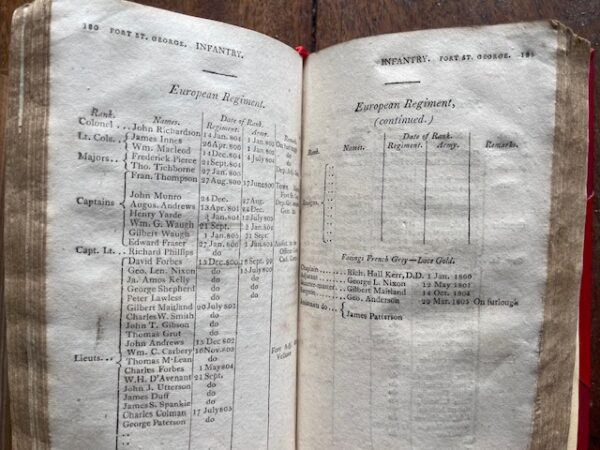 180 FORT ST. GEORGE. INFANTRY.
European Regiment.
Rank. Names. Date of Rank. Regiment. Army. Remarks
Colonel ... John Richardson 14 Jan. 801 1 Jan. 801
Lt. Cols. James Innes 26 Apr. 808 1 Jan. 803 do
Wm. Macleod 14 Dec. 804 4 July 803 do
Majors .. Frederick Pierce 21 Sept. 801
Tho. Tichborne 27 Jan. 801
Fran. Thompson 27 Aug. 800 17 June 800
Captains John Munro 24 Dec. 27 Aug.
Augus. Andrews 13 Apr. 801 24 Dec.
Henry Yarde Jan. 804 12 July 803
Wm. G. Waugh 21 Sept. 2 Jan. 803
Gilbert Waugh 1 Jan. 805 21 Sept.
Edward Fraser 27 Jan. 1 Jan. 800
Capt. Lt. Richard Phillips do
David Forbes 15 Dec. 800
Geo. Len. Nixon do 15 July 800
Ja. Amos Kelly do
George Shepherd do
Peter Lawless do
Gilbert Maitland 20 July 801
Charles W. Smith do
John T. Gibson do
Thomas Grut do
John Andrews 15 Dec 802
Lieuts... Wm. C. Carbery 16 Nov. 800
Thomas McLean do
Charles Forbes 1 May 804
W.H. D'Avenant 21 Sept.
John J. Utterson do
James Duff do
James S. Spankie do
Charles Colman 17 July 805
George Paterson do
INFANTRY. FORT ST. GEORGE. 181
European Regiment,
(continued.)
Rank. Names. Date of Rank. Regiment. Army. Remarks.
Ensigns,
Facings French Grey—Lace Gold.
Chaplain Rich. Hall Kerr, D.D. 1 Jan. 1800
Adjutant George L. Nixon 12 May 1801
Quarter-master Gilbert Maitland 14 Oct. 1804
Geo. Anderson 22 Mar. 1805 On furlough
Assistants do James Patterson